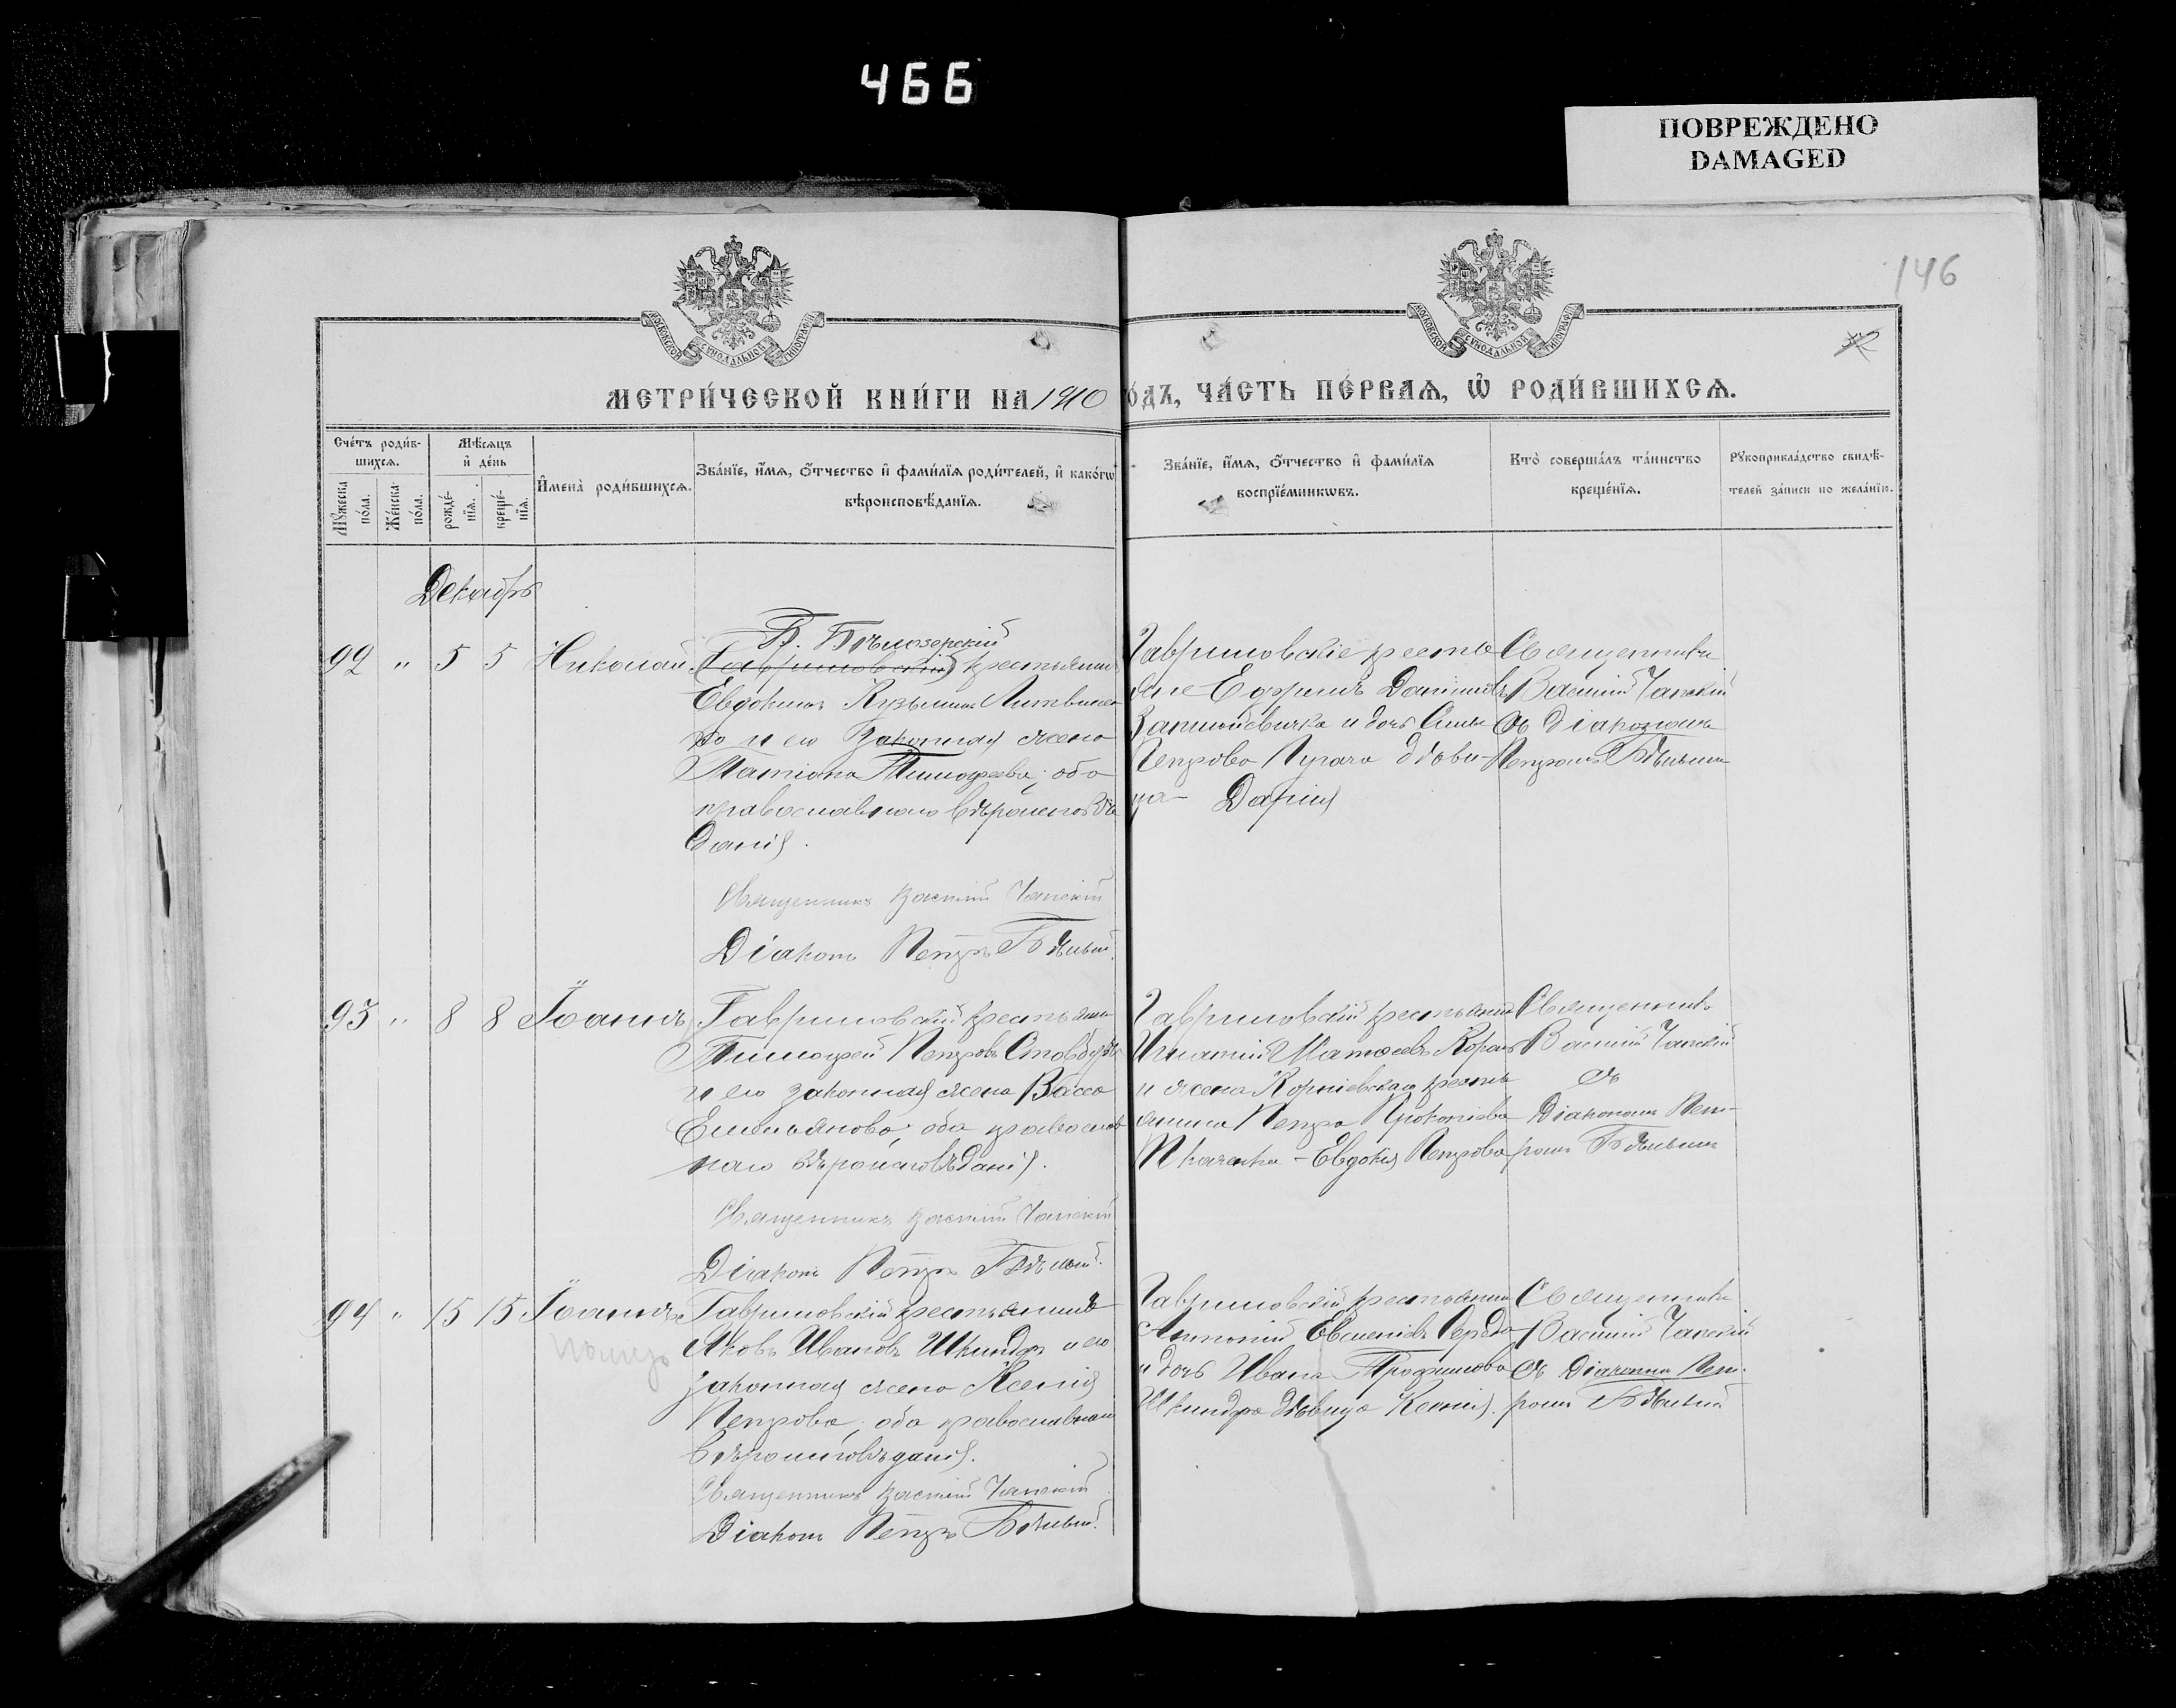 466
ПОВРЕЖДЕНО
DAMAGED
146
МЕТРИ́ЧЕСКОЙ КНИ́ГИ НА 1910 О́ДЪ, ЧА́СТЬ ПЕ́РВАѦ, Ѡ҆ РОДИ́ВШИХСѦ.
Сче́тъ роди́вшихсѧ.
Мꙋ́жеска по́ла.
Же́нска по́ла.
Мѣ́сѧцъ и҆ де́нь
рожде́нїѧ.
креще́нїѧ.
И҆мена̀ роди́вшихсѧ.
Зва́нїе, и҆́мѧ, ѻ҆́тчество и҆ фами́лїѧ роди́телей, и҆ како́гѡ
вѣроисповѣ́данїѧ.
Зва́нїе, и҆́мѧ, ѻ҆́тчество и҆ фами́лїѧ
воспрїе́мникѡвъ.
Кто̀ соверша́лъ та́инство
креще́нїѧ.
Рꙋкоприкла́дство свидѣ́-
телей за́писи по жела́нїю.
Декабрь
92 " 5 5 Николай
Б. Бѣлозерскій
Гавриловскій крестьянинъ
Евдокимъ Кузьминъ Литвинен
ко и его законная жена
Матрона Тимофеева; оба
православнаго вѣроисповѣ
данія.
Священникъ Василій Чапскій
Діаконъ Петръ Бѣлый.
Гавриловскіе крестья
не Ефримъ Даниловъ
и дочь
Петрова Пугача дѣви-
ца Дарія
Священникъ
Василій Чапскій
съ діакономъ
Петромъ Бѣлымъ
93 " 8 8 Іоаннъ
Гавриловскій крестьянин
Тимофей Петровъ
и его законная жена Васса
Емельянова; оба православ
наго вѣроисповѣданія.
Священникъ Василій Чапскій
Діаконъ Петръ Бѣлый.
Гавриловскій крестьянин
Игнатій Матѳеевъ
и жена Корніевскаго кресть
янина Петра Прокопіева
Ткаченка - Евдокія Петрова
Священникъ
Василій Чапскій
съ
Діакономъ Пет-
ромъ Бѣлымъ
94 " 15 15 Іоаннъ
Гавриловскій крестьянинъ
Яковъ Ивановъ Шкиндеръ и его
законная жена Ксенія
Петрова; оба православнаго
вѣроисповѣданія.
Священникъ Василій Чапскій
Діаконъ Петръ Бѣлый.
Гавриловскій крестьянин
Антоній Евменіевъ Середа
и дочь Ивана Трофимова
Шкиндра дѣвица Ксенія.
Священникъ
Василій Чапскій
съ Діакономъ Пет-
ромъ Бѣлымъ